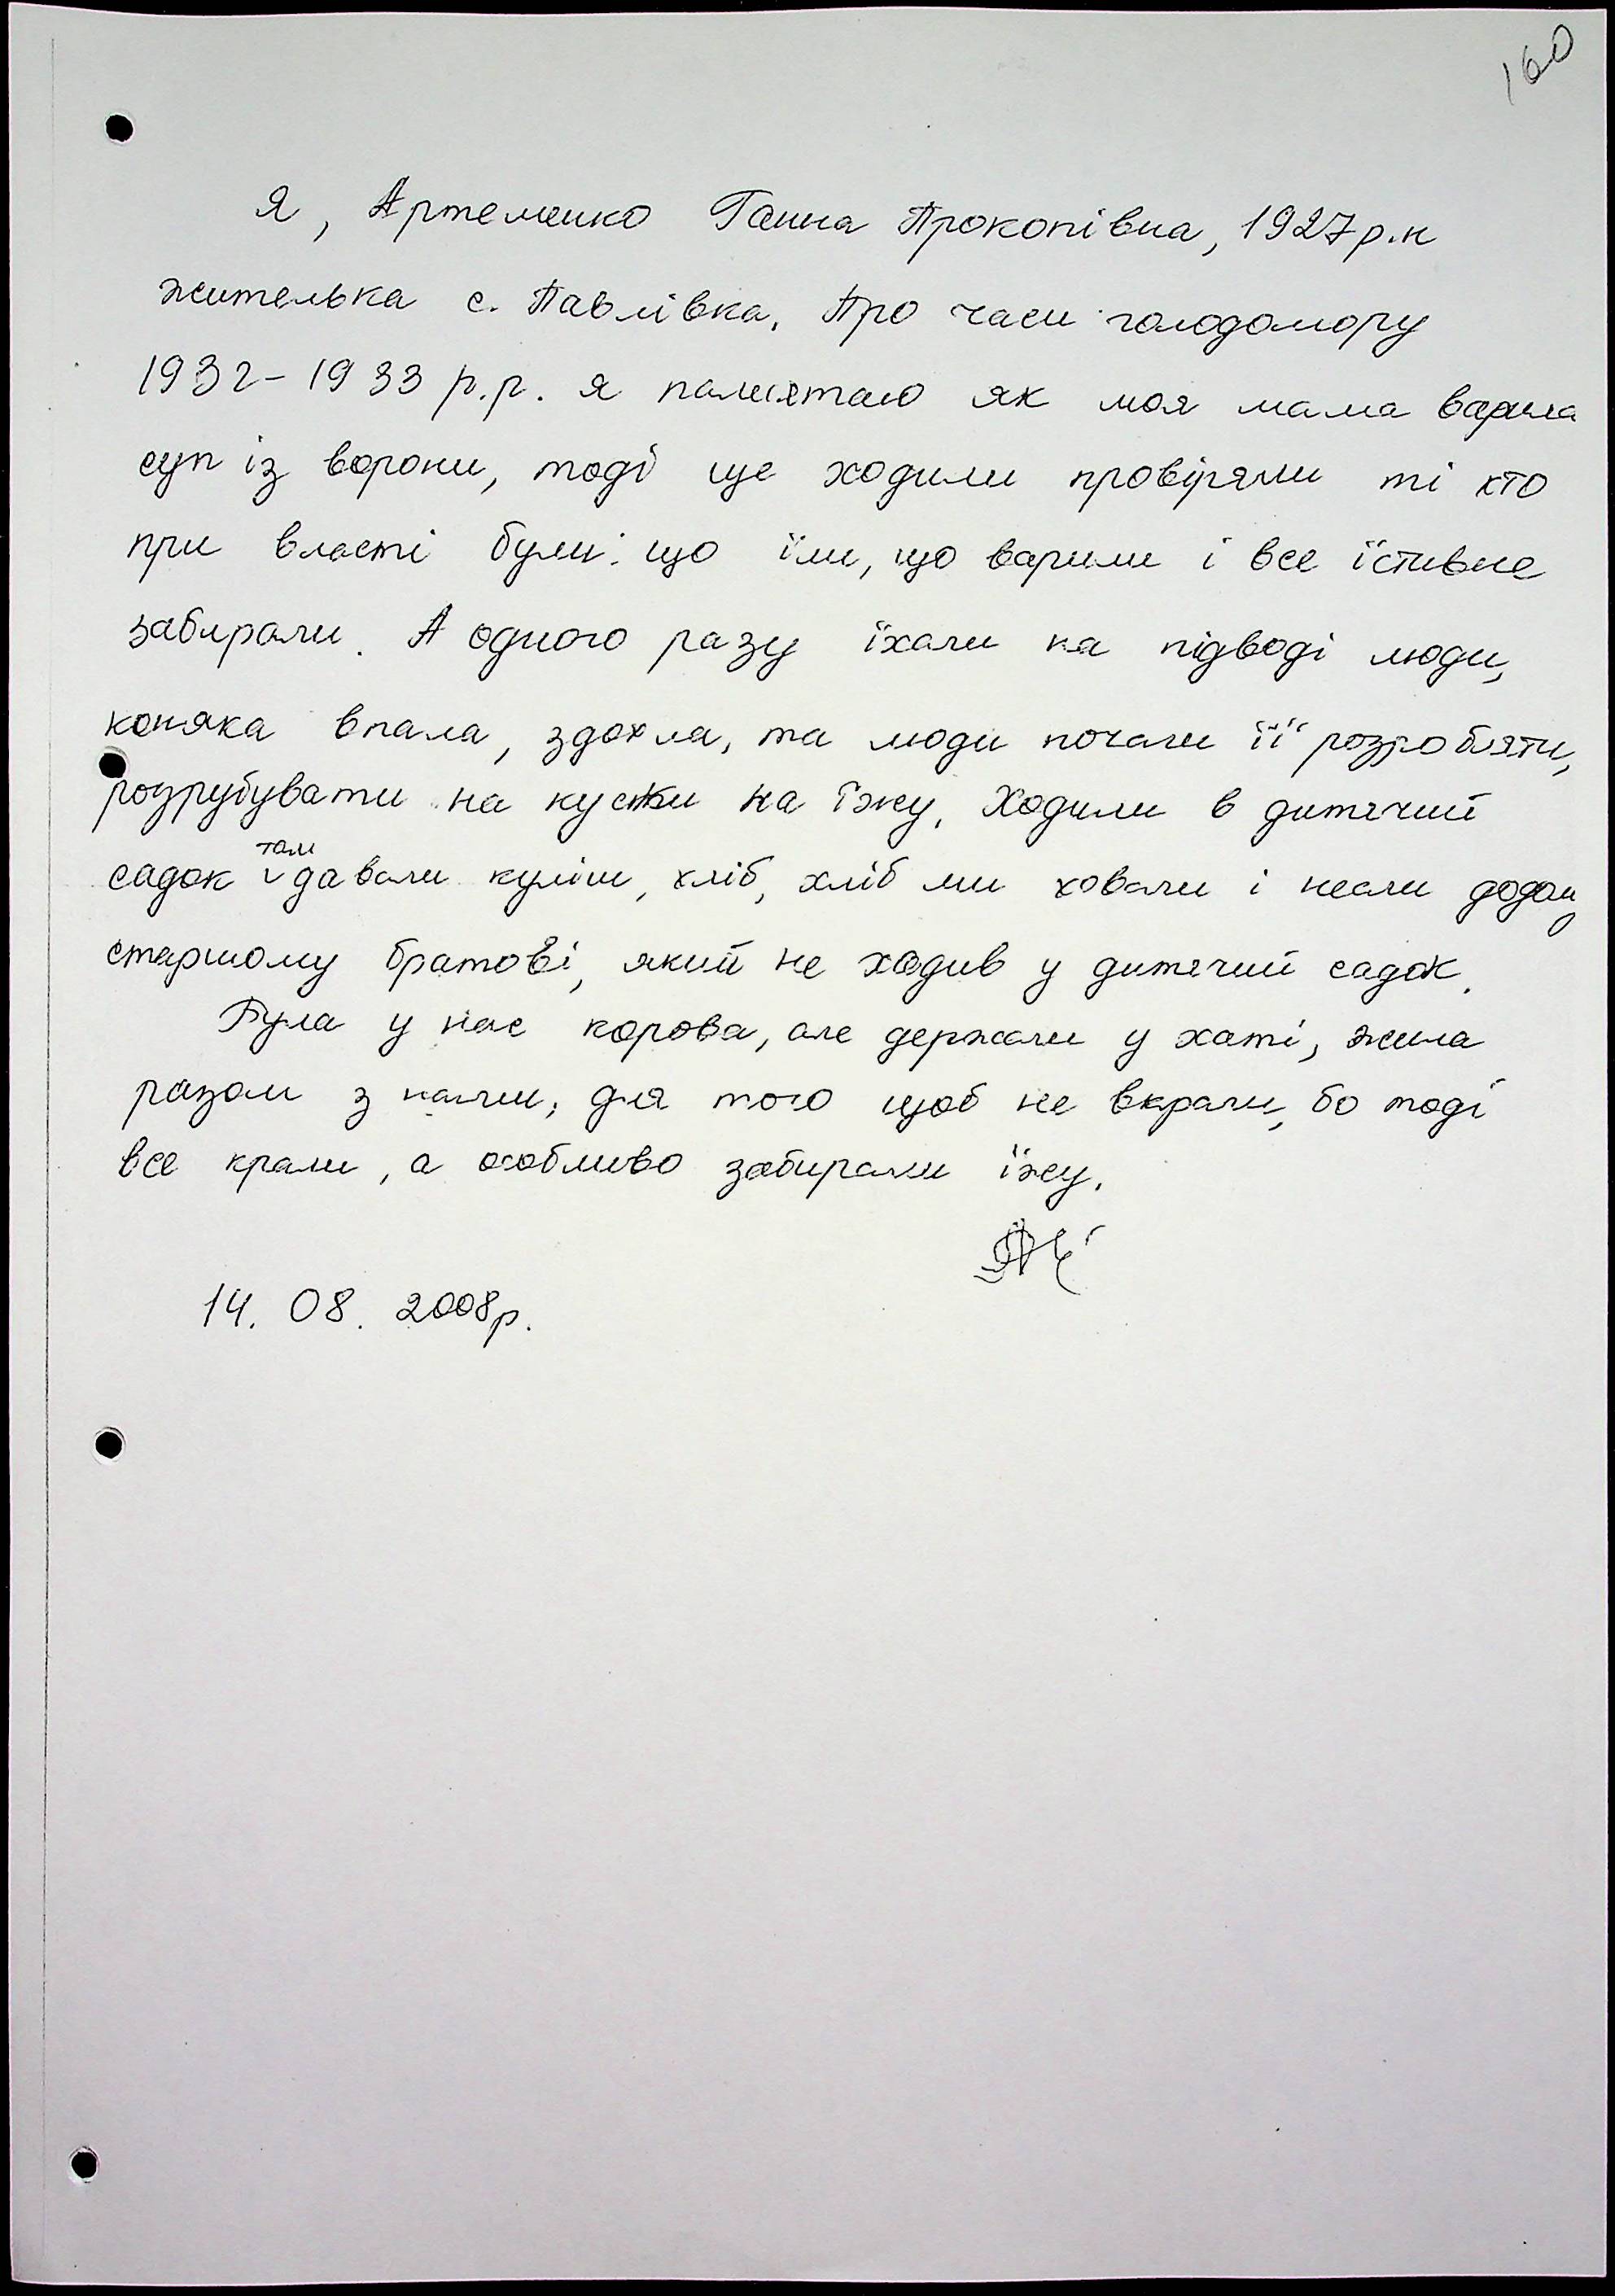 160
Я, Артеменко Ганна Прокопівна, 1927 р.н
жителька с. Павлівка. Про часи голодомору
1932-1933 р.р. я памятаю як моя мама варила
суп із ворони, тоді ще ходили провіряли ті кто
при власті були: що їли, що варили і все їстивне
забирали. А одного разу їхали на підводі люди,
коняка впала, здохла, та люди почали її розробляти,
розрубувати на куски на їжу. Ходили в дитячий
садок там давали куліш, хліб, хліб ми ховали і несли додому
старшому братові, який не ходив у дитячий садок.
Була у нас корова, але держали у хаті, жила
разом з нами, для того щоб не вкрали, бо тоді
все крали, а особливо забирали їжу.
14. 08. 2008р.